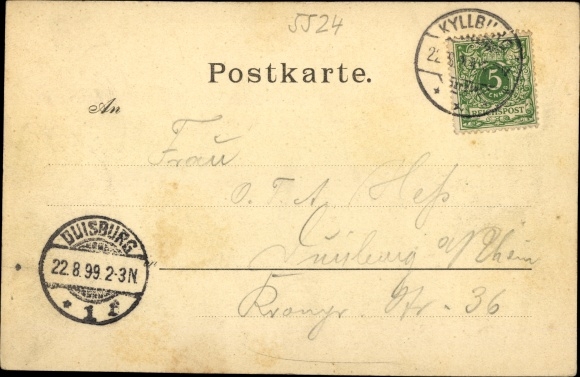 5524
KYLLBU
22 8
Postkarte.
5
REICHSPOST
An
Frau
O. T. A. Heß
Duisburg a/Rhein
DUISBURG
22.8.99.2-3N.
* 1 f
Str. 36